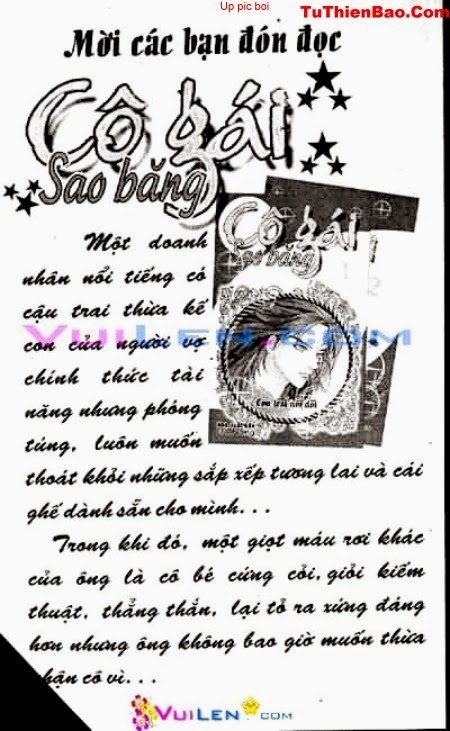 Up pic boi
TuThienBao.Com
Mời các bạn đón đọc
Cô gái
Sao băng
Cô gái
sao băng
Con trai nối dõi
Một doanh
nhân nổi tiếng có
cậu trai thừa kế
con của người vợ
chính thức tài
năng nhưng phóng
túng, luôn muốn
thoát khỏi những sắp xếp tương lai và cái
ghế dành sẵn cho mình...
Trong khi đó, một giọt máu rơi khác
của ông là cô bé cứng cỏi, giỏi kiếm
thuật, thẳng thắn, lại tỏ ra xứng đáng
hơn nhưng ông không bao giờ muốn thừa
nhận cô vì...
VuiLen.com
VuiLen.com